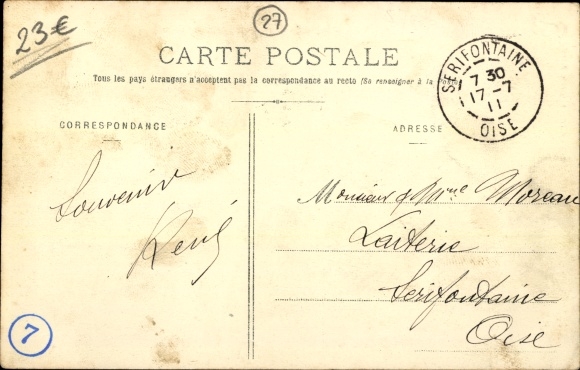 23€
27
CARTE POSTALE
Tous les pays étrangers n'acceptent pas la correspondance au recto (Se renseigner à la
SERIFONTAINE
7 30
17-7
11
OISE
CORRESPONDANCE
ADRESSE
Souvenir
René
Monsieur & Mme Moreau
Laiterie
Serifontaine
Oise
7